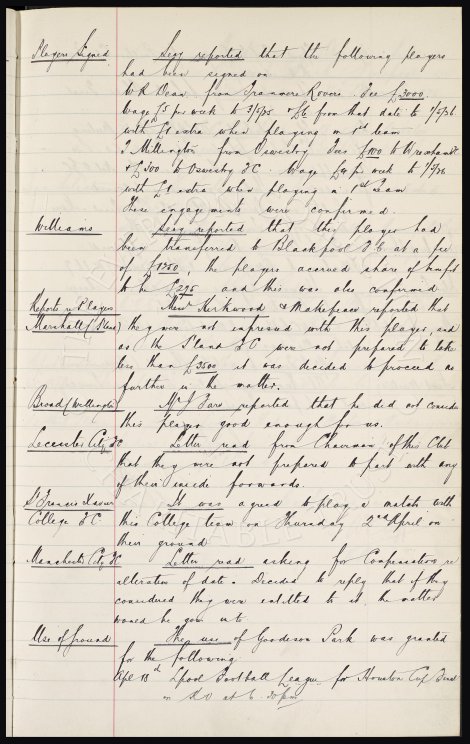 Players Signed Secy reported that the following players
had been signed on
W R Dean from Tranmere Rovers. Fee £3000.
Wage £5 per week to 3/5/25 & £6 from that date to 1/5/26
with £1 extra when playing in 1st team
J Millington from Oswestry. Fees £100 to Wrexham FC
& £300 to Oswestry FC. Wage £4 p. week to 1/5/26
with £1 extra when playing in 1st team
These engagements were confirmed.
Williams Secy reported that this player had
been transferred to Blackpool FC at a fee
of £1750, the players accrued share of benefit
to be £295 and this was also confirmed
Reports re Players Messrs Kirkwood & Makepeace reported that
Marshall ( ) they were not impressed with this player, and
as the FC were not prepared to take
less than £3500 it was decided to proceed no
further in the matter.
Broad (Wellington) Mr J Fare reported that he did not consider
this player good enough for us.
Leicester City FC Letter read from Chairman of this Club
that they were not prepared to part with any
of their inside forwards.
St Francis Xavier It was agreed to play a match with
College FC this College team on Thursday 2nd April on
their ground
Manchester City FC Letter read asking for Compensation re
alteration of date. Decided to reply that if they
considered they were entitled to it the matter
would be gone into
Use of Ground The use of Goodison Park was granted
for the following
Apl 18th Lpool Football League for Houston Cup
K O at 6.30pm